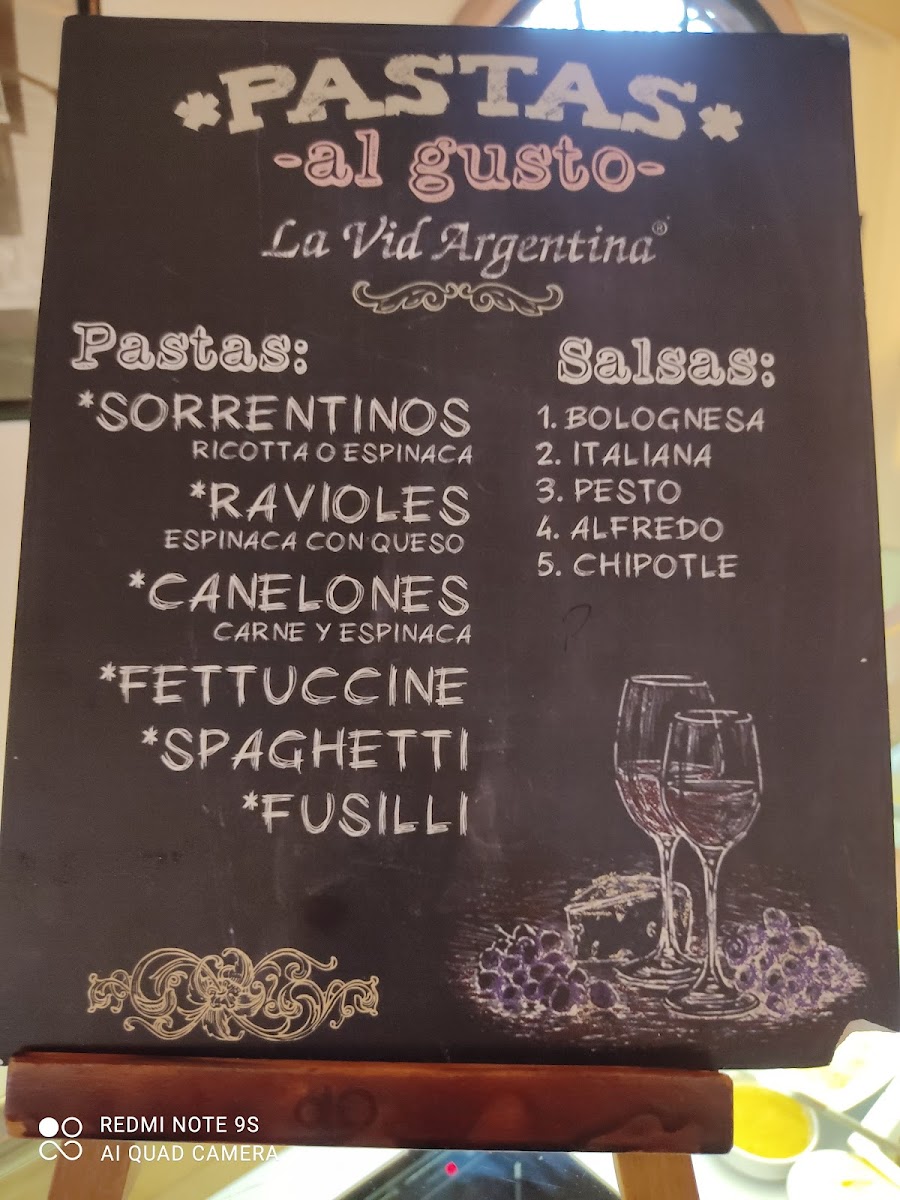 *PASTAS*
-al gusto-
La Vid Argentina®
Pastas:
*SORRENTINOS
RICOTTA O ESPINACA
*RAVIOLES
ESPINACA CON QUESO
*CANELONES
CARNE Y ESPINACA
*FETTUCCINE
*SPAGHETTI
*FUSILLI
Salsas:
1. BOLOGNESA
2. ITALIANA
3. PESTO
4. ALFREDO
5. CHIPOTLE
REDMI NOTE 9S
AI QUAD CAMERA